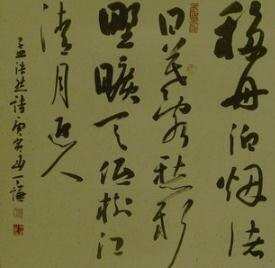 移舟泊烟渚
日暮客愁新
野旷天低树江
清月近人
孟浩然诗